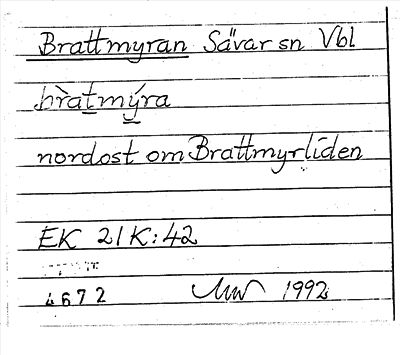 Brattmyran Sävar sn Vbl
bràtmýra
nordost om Brattmyrliden
EK 21K:42
4672 1992